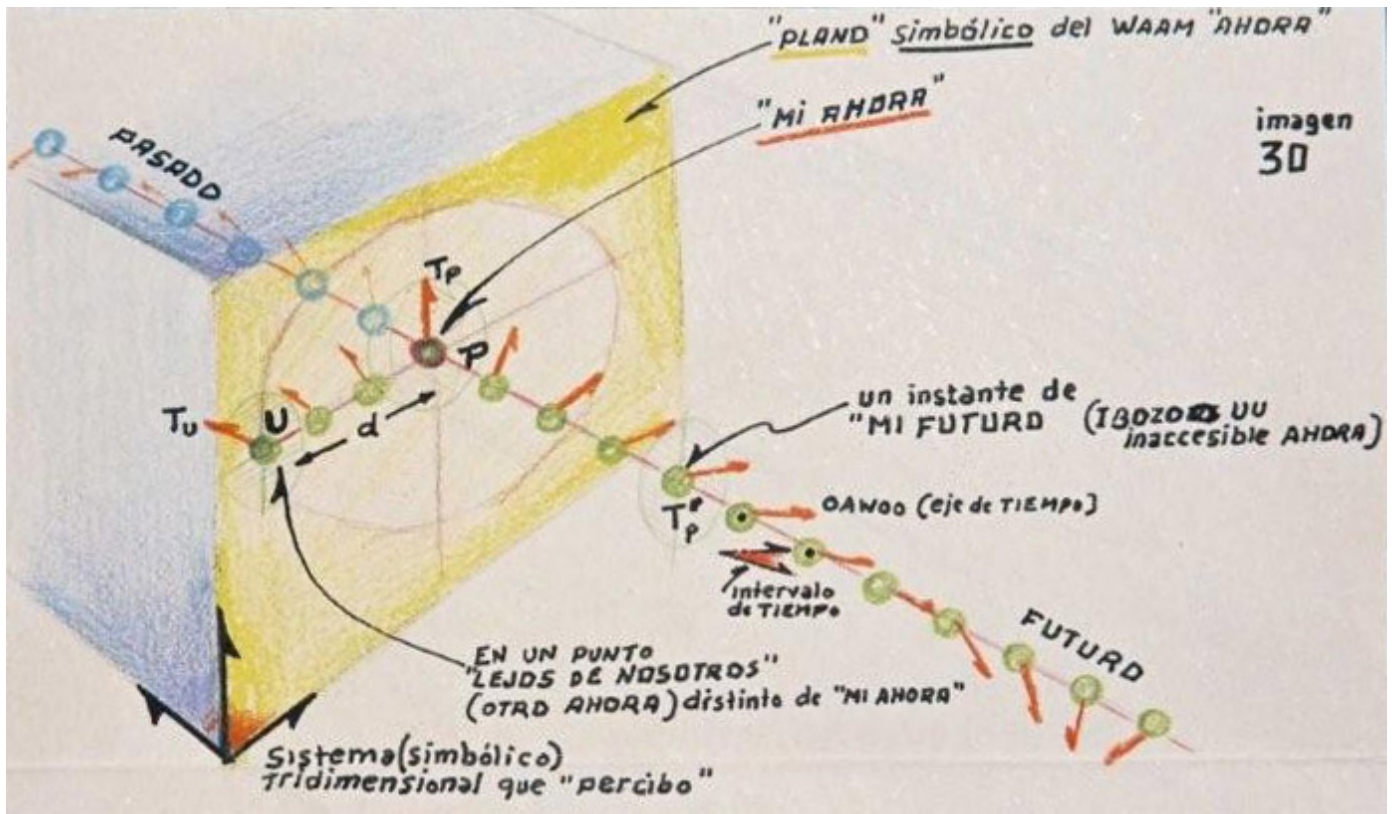 "PLANO" simbólico del WAAM "AHORA"
"Mi AHORA"
imagen
30
PASADO
Tp
P
Tu
U
d
un instante de
"MI FUTURO (IBOZOO UU
inaccesible AHORA)
T"p
OAWOO (eje de TIEMPO)
intervalo
de TIEMPO
FUTURO
EN UN PUNTO
"LEJOS DE NOSOTROS"
(OTRO AHORA) distinto de "MI AHORA"
Sistema (simbólico)
Tridimensional que "percibo"